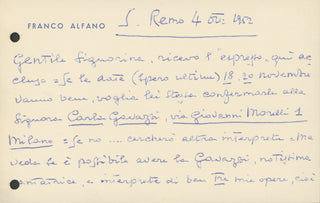 FRANCO ALFANO
S. Remo 4 ott. 1952
Gentile Signorina, ricevo l'espresso, qui ac
cluso = Se le date (spero ultime) 18, 20 novembre
vanno bene, voglia lei stessa confermarle alla
Signora Carla Gavazzi, via Giovanni Morelli 1
Milano = Se no .... cercherò altra interprete = Ma
veda se è possibile avere la Gavazzi, notissima
cantatrice, e interprete di ben tre mie opere, cioè